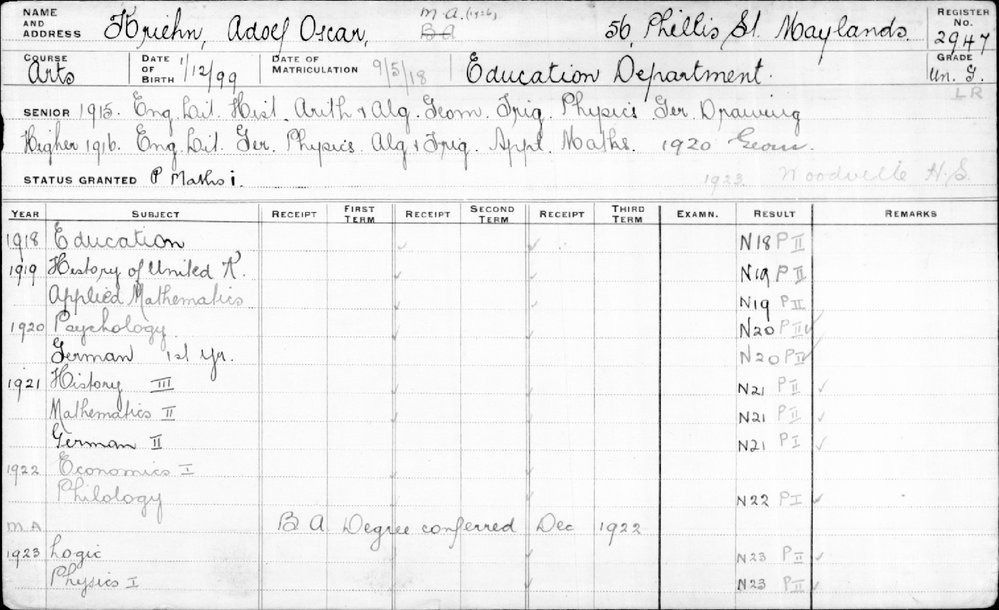 NAME AND ADDRESS Kriehn, Adolf Oscar, M.A. (1926) B A 56, Phillis St. Maylands. REGISTER No. 2947
COURSE Arts DATE OF BIRTH 1/12/99 DATE OF MATRICULATION 9/5/18 Education Department. GRADE Un. G.
LR
SENIOR 1915. Eng. Lit. Hist. Arith & Alg. Geom. Trig. Physics Ger. Drawing
Higher 1916. Eng. Lit. Ger. Physics. Alg & Trig. Appl. Maths. 1920 Geom.
STATUS GRANTED P Maths i. 1923. Woodville H.S.
YEAR SUBJECT RECEIPT FIRST TERM RECEIPT SECOND TERM RECEIPT THIRD TERM EXAMN. RESULT REMARKS
1918 Education N18 P II
1919 History of United K. N19 P II
Applied Mathematics N19 P II
1920 Psychology N20 P II
German 1st Yr. N20 P II
1921 History III N21 P II
Mathematics II N21 P II
German II N21 P I
1922 Economics I
Philology N22 P I
M A B A Degree conferred Dec 1922
1923 Logic N23 P II
Physics I N23 P II